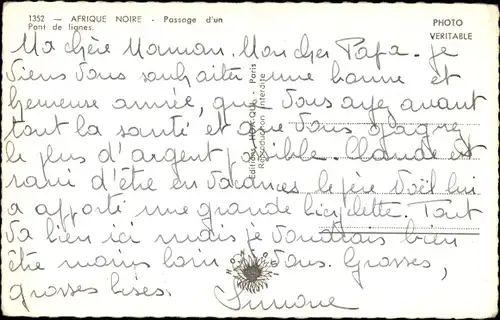 1352 — AFRIQUE NOIRE - Passage d'un
Pont de lianes.
PHOTO
VERITABLE
Ma chère Maman. Mon cher Papa. je
viens vous souhaiter une bonne et
heureuse année, que vous ayez avant
tout la santé et que vous gagnez
le plus d'argent possible. Claude est
ravi d'être en vacances le père Noël lui
a apporté une grande bicyclette. Tout
va bien ici mais je voudrais bien
être moins loin de vous. Grosses,
grosses bises.
Simone
Editions HOA-QUI - Paris
Reproduction Interdite